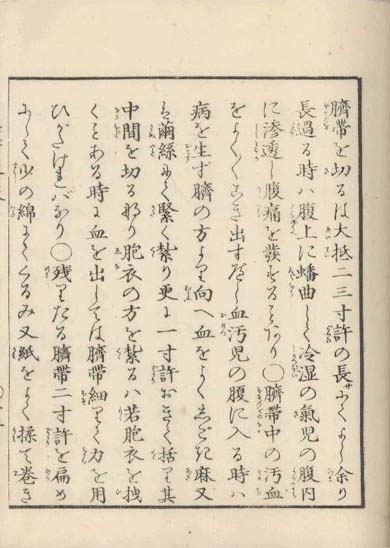 臍帯を切るは大抵二三寸許の長にてよし余り
長過る時ハ腹上に蟠曲して冷湿の氣児の腹内
に滲透し腹痛を發することあり○臍帯中の汚血
をよくしごき出すべし血汚児の腹に入る時ハ
病を生ず臍の方より向へ血をよくしごき麻又
は繭絲にて緊く紮り更に一寸許おきて括り其
中間を切る胞衣の方を紮るハ若胞衣を拽
くことある時に血を出しては臍帯細りて力を用
ひがたければなり○残りたる臍帯二寸許を扁め
にして少の綿にてくるみ又紙をよく揉て巻き